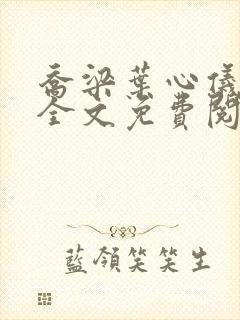 喬梁葉心儀
全文免費閱
藍領笑笑生